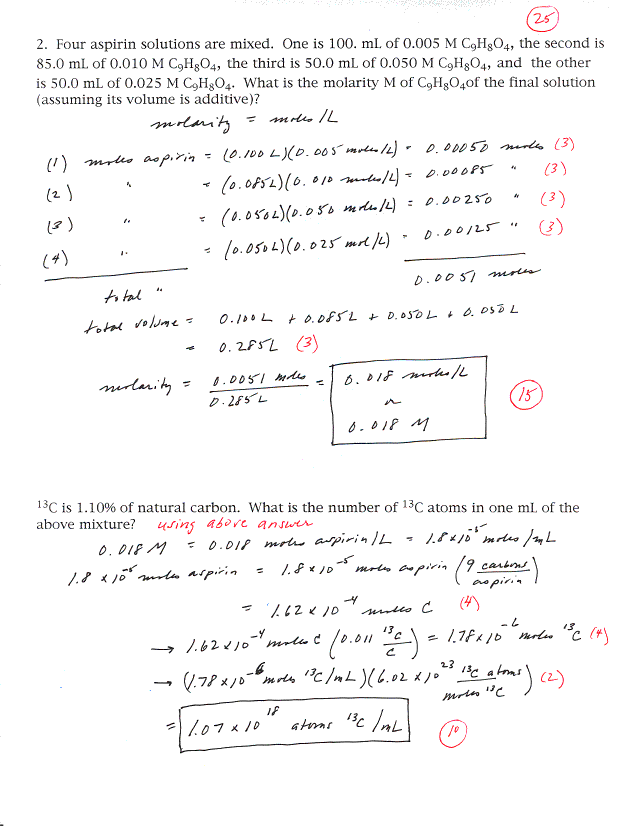 25
2. Four aspirin solutions are mixed. One is 100. mL of 0.005 M C₉H₈O₄, the second is
85.0 mL of 0.010 M C₉H₈O₄, the third is 50.0 mL of 0.050 M C₉H₈O₄, and the other
is 50.0 mL of 0.025 M C₉H₈O₄. What is the molarity M of C₉H₈O₄of the final solution
(assuming its volume is additive)?
molarity = moles/L
(1) moles aspirin = (0.100 L)(0.005 moles/L) = 0.00050 moles (3)
(2) " = (0.085L)(0.010 moles/L) = 0.00085 " (3)
(3) " = (0.050L)(0.050 moles/L) = 0.00250 " (3)
(4) " = (0.050L)(0.025 mol/L) = 0.00125 " (3)
total " 0.0051 moles
total volume = 0.100L + 0.085L + 0.050L + 0.050L
= 0.285L (3)
molarity = 0.0051 moles / 0.285L = 0.018 moles/L
or
0.018 M
15
¹³C is 1.10% of natural carbon. What is the number of ¹³C atoms in one mL of the
above mixture? using above answer
0.018 M = 0.018 moles aspirin/L = 1.8 x 10⁻⁵ moles/mL
1.8 x 10⁻⁵ moles aspirin = 1.8 x 10⁻⁵ moles aspirin (9 carbons / aspirin)
= 1.62 x 10⁻⁴ moles C (4)
→ 1.62 x 10⁻⁴ moles C (0.011 ¹³C / C) = 1.78 x 10⁻⁶ moles ¹³C (4)
→ (1.78 x 10⁻⁶ moles ¹³C/mL)(6.02 x 10²³ ¹³C atoms / moles ¹³C) (2)
= 1.07 x 10¹⁸ atoms ¹³C/mL
10